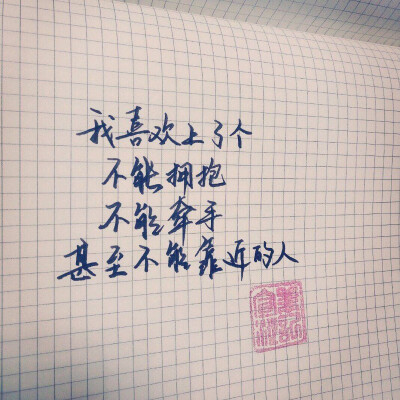 我喜欢上了个
不能拥抱
不能牵手
甚至不能靠近的人